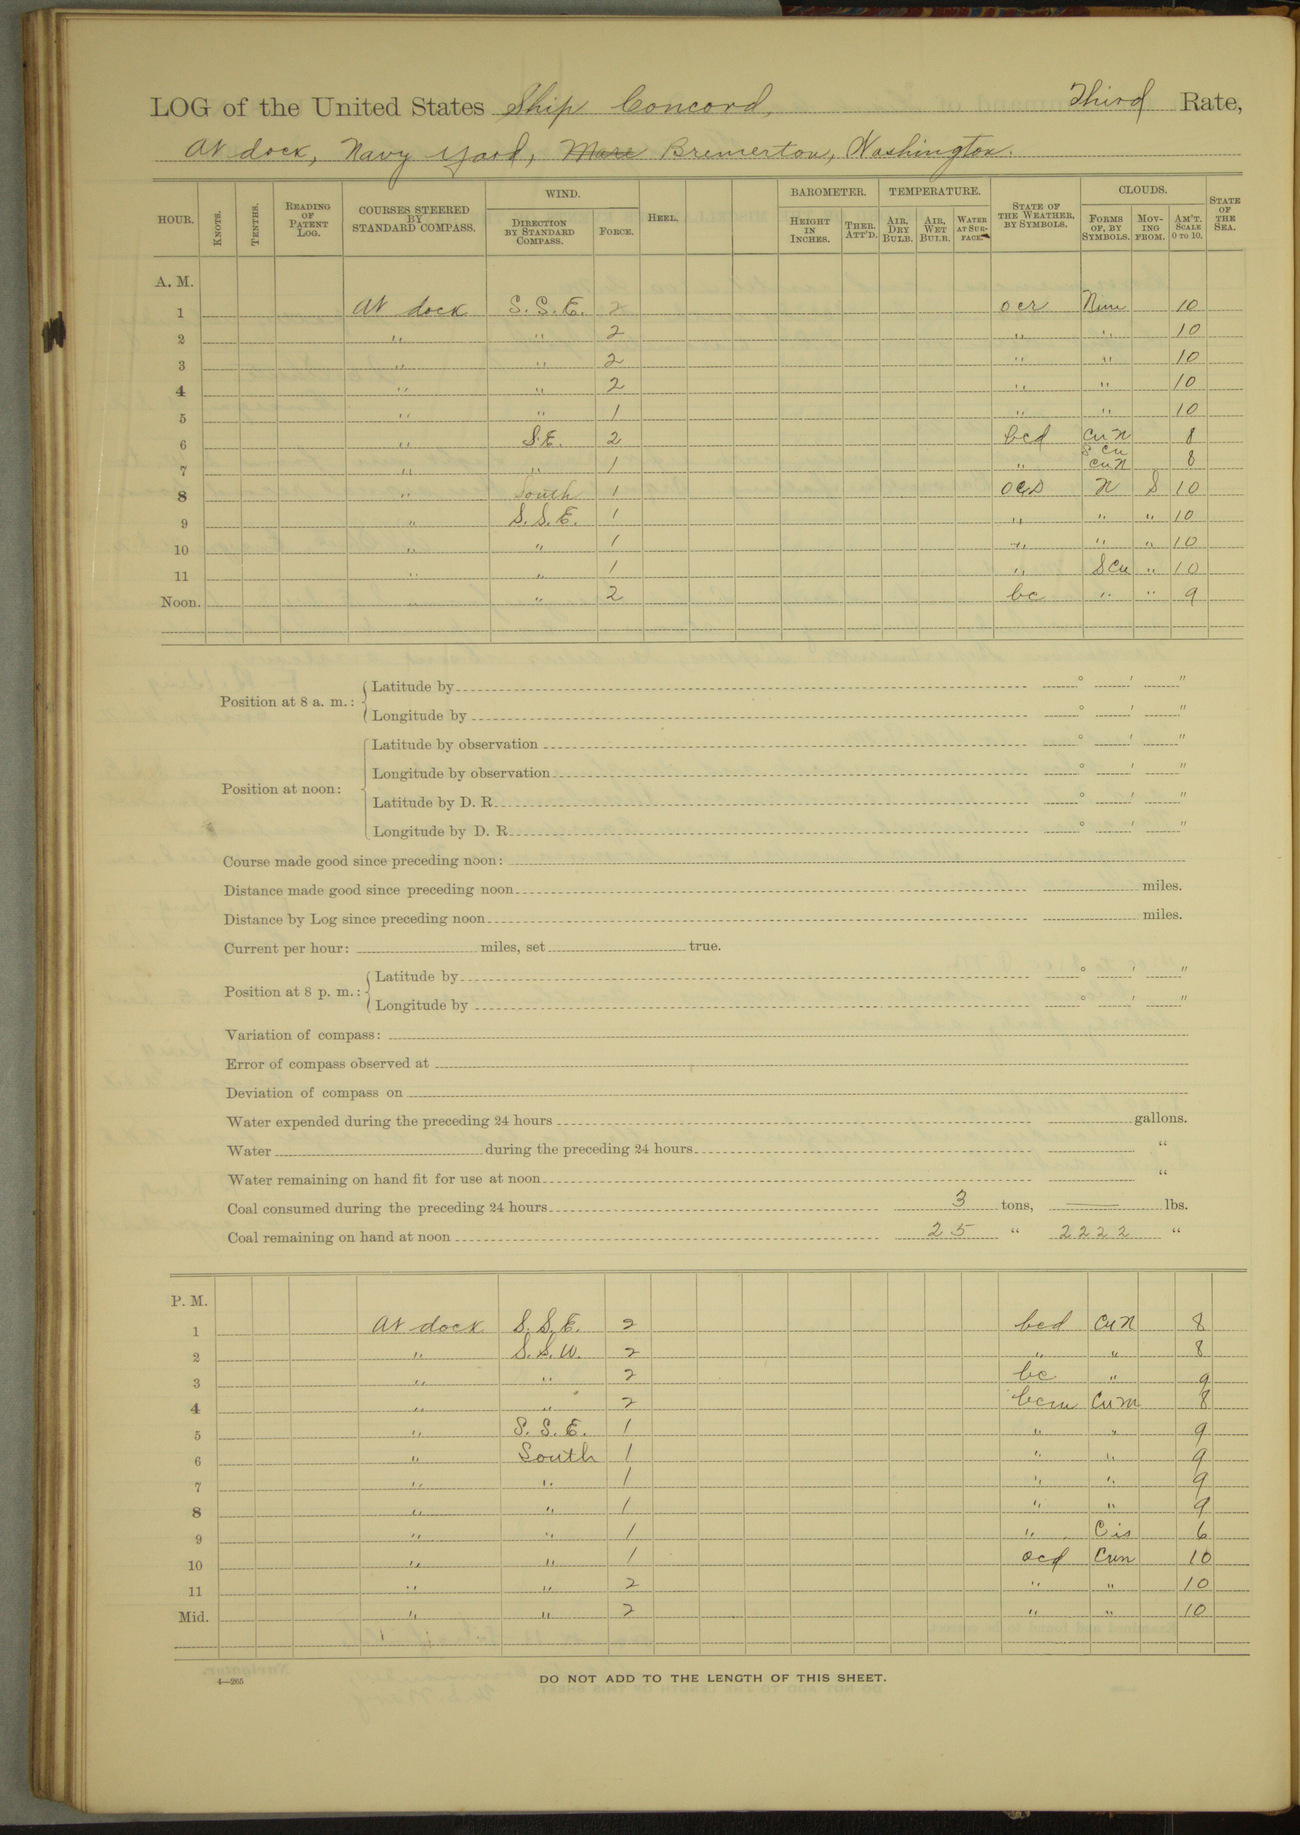 LOG of the United States Ship Concord, Third Rate,
At dock, Navy Yard, Mare Bremerton, Washington.
HOUR. KNOTS. TENTHS. READING OF PATENT LOG. COURSES STEERED BY STANDARD COMPASS. WIND. DIRECTION BY STANDARD COMPASS. FORCE. HEEL. BAROMETER. HEIGHT IN INCHES. THER. ATT'D. TEMPERATURE. AIR, DRY BULB. AIR, WET BULB. WATER AT SURFACE. STATE OF THE WEATHER, BY SYMBOLS. CLOUDS. FORMS OF, BY SYMBOLS. MOVING FROM. AM'T. SCALE 0 TO 10. STATE OF THE SEA.
A. M.
1 At dock S. S. E. 2 ocr Nim 10
2 " " 2 " " 10
3 " " 2 " " 10
4 " " 2 " " 10
5 " " 1 " " 10
6 " S.E. 2 bcd Cu N 8
7 " " 1 " S Cu Cu N 8
8 " South 1 N S 10
9 " S. S. E. 1 " " " 10
10 " " 1 " " " 10
11 " " 1 " S Cu " 10
Noon. " " 2 bc " " 9
Position at 8 a. m.: Latitude by ° ' "
Longitude by ° ' "
Position at noon: Latitude by observation ° ' "
Longitude by observation ° ' "
Latitude by D. R. ° ' "
Longitude by D. R. ° ' "
Course made good since preceding noon:
Distance made good since preceding noon miles.
Distance by Log since preceding noon miles.
Current per hour: miles, set true.
Position at 8 p. m.: Latitude by ° ' "
Longitude by ° ' "
Variation of compass:
Error of compass observed at
Deviation of compass on
Water expended during the preceding 24 hours gallons.
Water during the preceding 24 hours "
Water remaining on hand fit for use at noon "
Coal consumed during the preceding 24 hours 3 tons, — lbs.
Coal remaining on hand at noon 25 " 2222 "
P. M.
1 At dock S. S. E. 2 bcd Cu N 8
2 " S. S. W. 2 " " 8
3 " " 2 bc " 9
4 " " 2 bcm 8
5 " S. S. E. 1 " " 9
6 " South 1 " " 9
7 " " 1 " " 9
8 " " 1 " " 9
9 " " 1 " 6
10 " " 1 ocd Cun 10
11 " " 2 " " 10
Mid. " " 2 " " 10
4—265
DO NOT ADD TO THE LENGTH OF THIS SHEET.